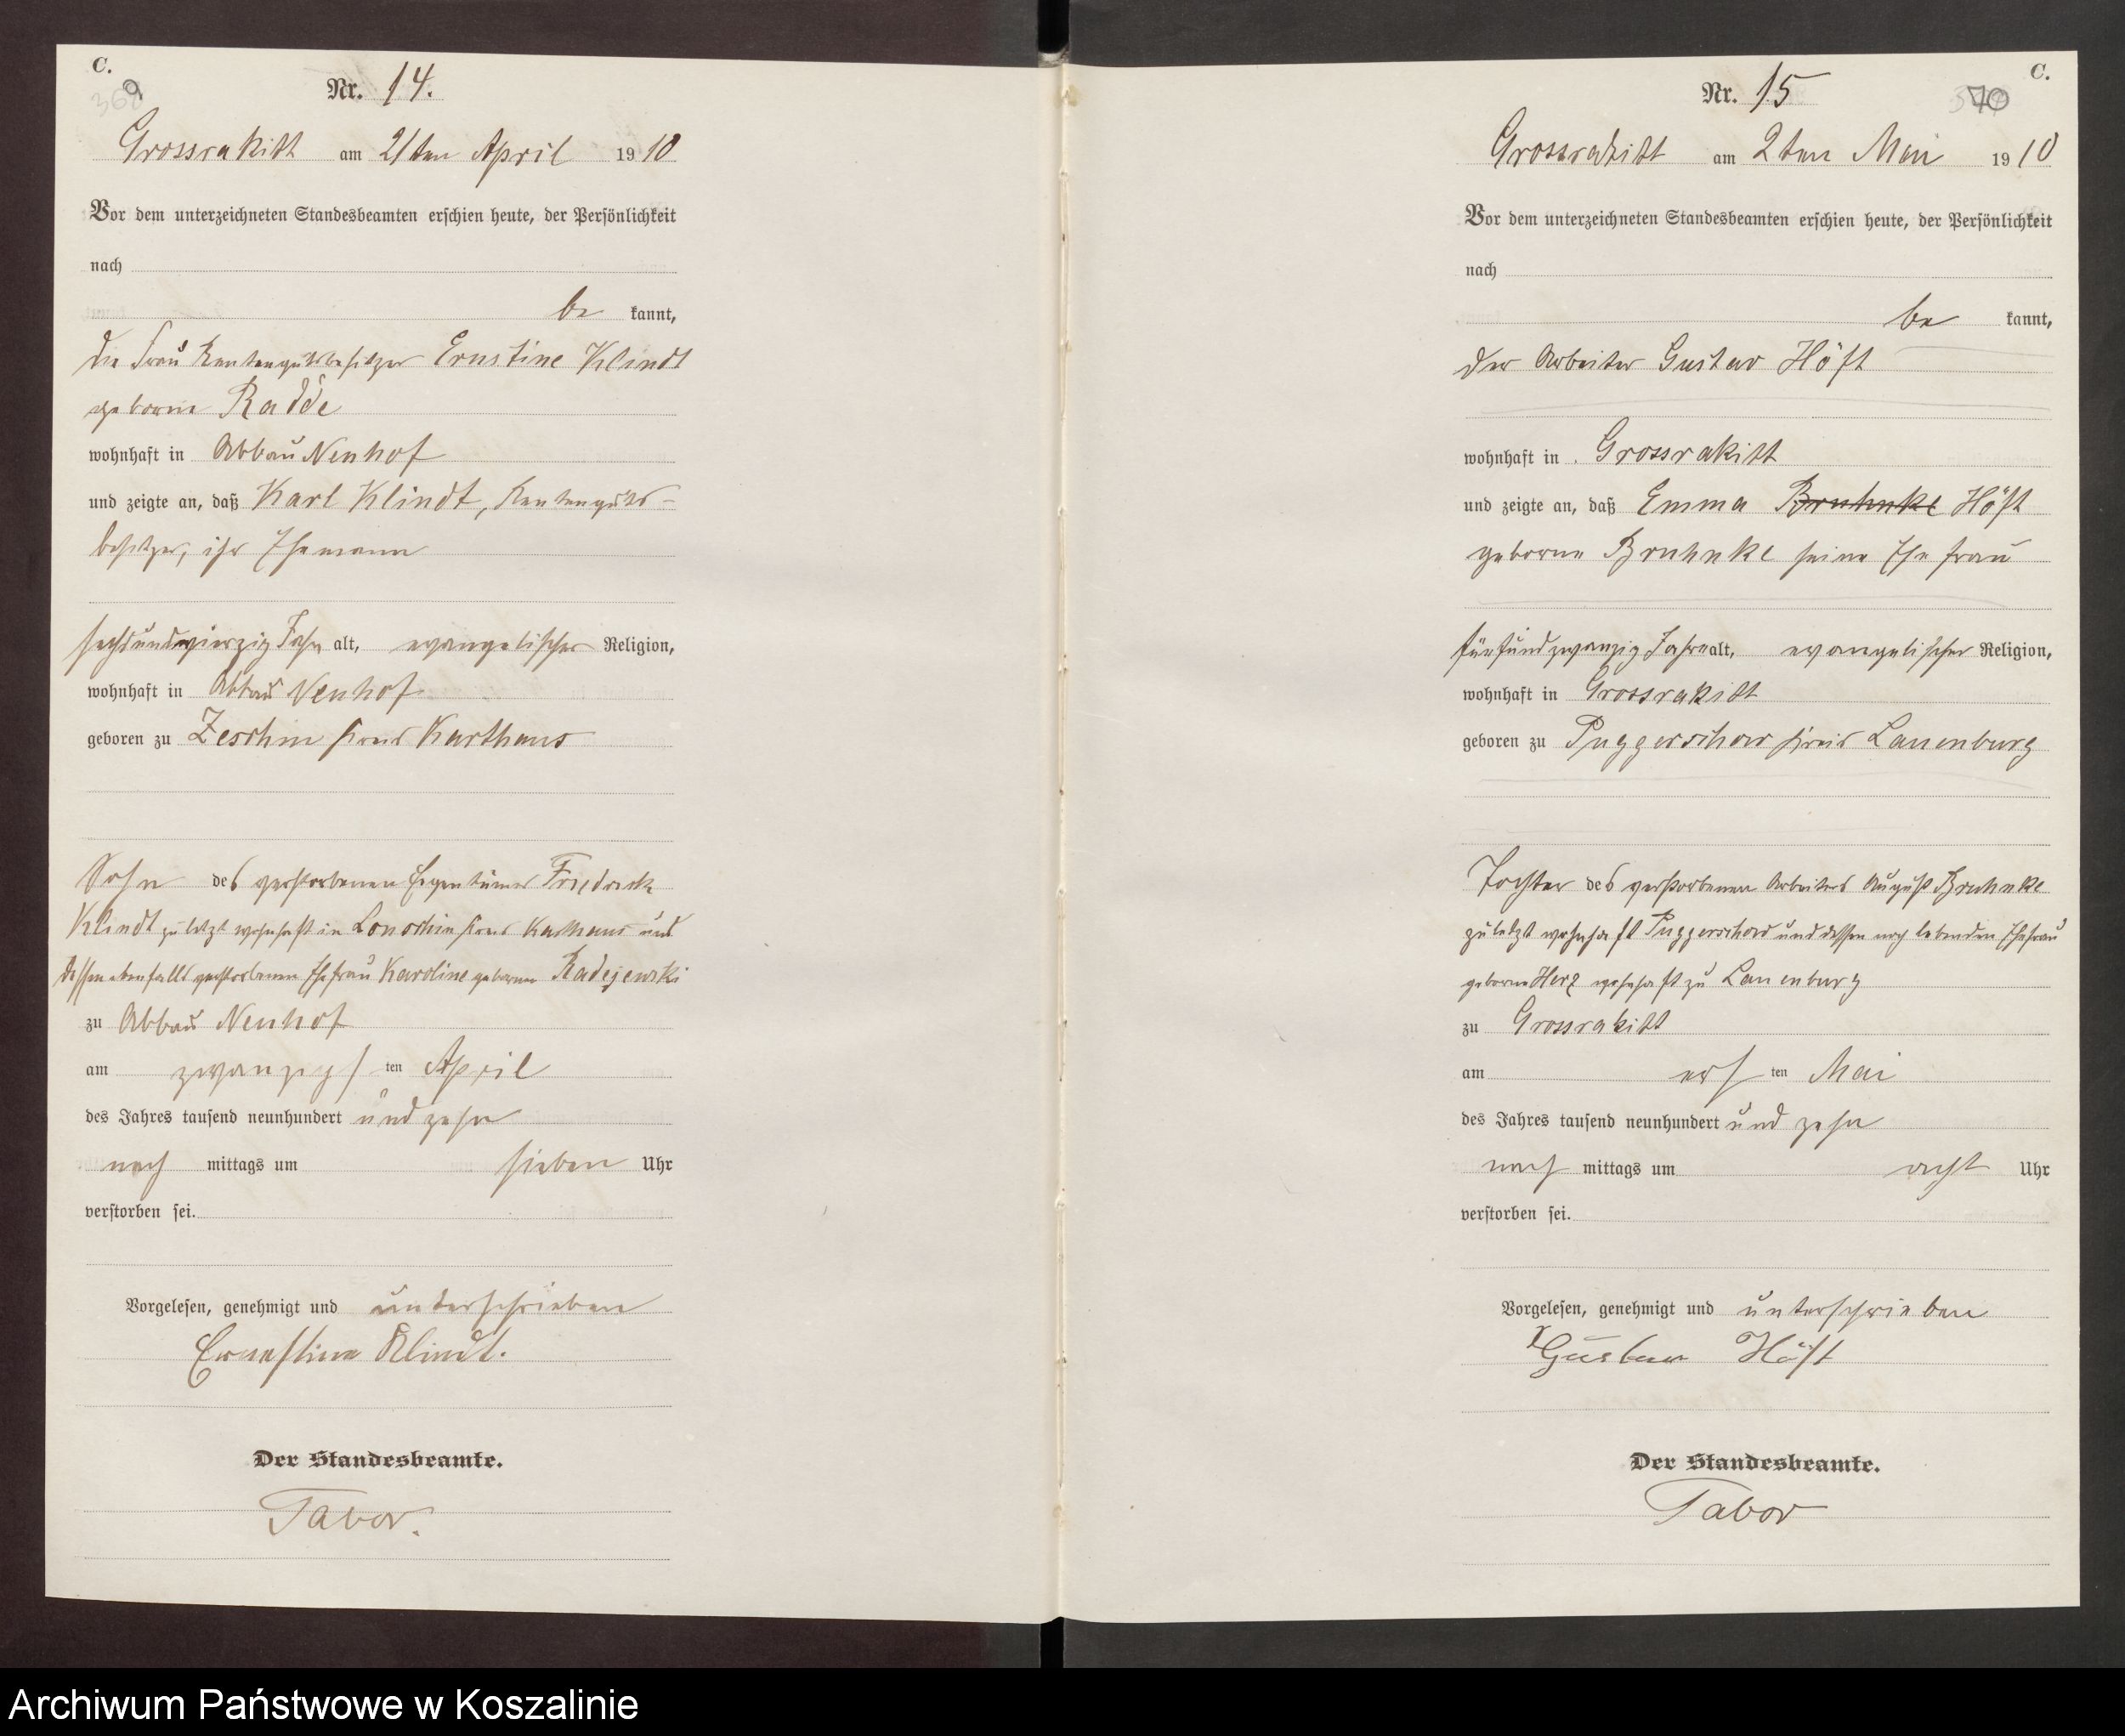 C.
9
Nr. 14.
Grossrakitt am 21ten April 1910
Vor dem unterzeichneten Standesbeamten erschien heute, der Persönlichkeit
nach
be kannt,
die Frau Rentengutsbesitzer Ernstine Klindt
geborne Radde
wohnhaft in Abbau Neuhof
und zeigte an, daß Karl Klindt, Rentenguts-
besitzer, ihr Ehemann
sechsundvierzig Jahr alt, evangelischer Religion,
wohnhaft in Abbau Neuhof
geboren zu Zeschin Kreis Karthaus
Sohn des verstorbenen Eigentümers Friedrich
Klindt zuletzt wohnhaft in Lonschin Kreis Karthaus und
dessen ebenfalls verstorbenen Ehefrau Karoline geborne Radejewski
zu Abbau Neuhof
am zwanzigsten April
des Jahres tausend neunhundert und zehn
nach mittags um sieben Uhr
verstorben sei.
Vorgelesen, genehmigt und unterschrieben
Ernestine Klindt.
Der Standesbeamte.
Tabor.
C.
70
Nr. 15
Grossrakitt am 2ten Mai 1910
Vor dem unterzeichneten Standesbeamten erschien heute, der Persönlichkeit
nach
be kannt,
der Arbeiter Gustav Höft
wohnhaft in Grossrakitt
und zeigte an, daß Emma Bruhnke Höft
geborne Bruhnke seine Ehefrau
fünfundzwanzig Jahre alt, evangelischer Religion,
wohnhaft in Grossrakitt
geboren zu Puggerschow Kreis Lauenburg
Tochter des verstorbenen Arbeiters August Bruhnke
zuletzt wohnhaft Puggerschow und dessen noch lebenden Ehefrau
geborne Herz wohnhaft zu Lauenburg
zu Grossrakitt
am ersten Mai
des Jahres tausend neunhundert und zehn
nach mittags um acht Uhr
verstorben sei.
Vorgelesen, genehmigt und unterschrieben
Gustav Höft
Der Standesbeamte.
Tabor
Archiwum Państwowe w Koszalinie